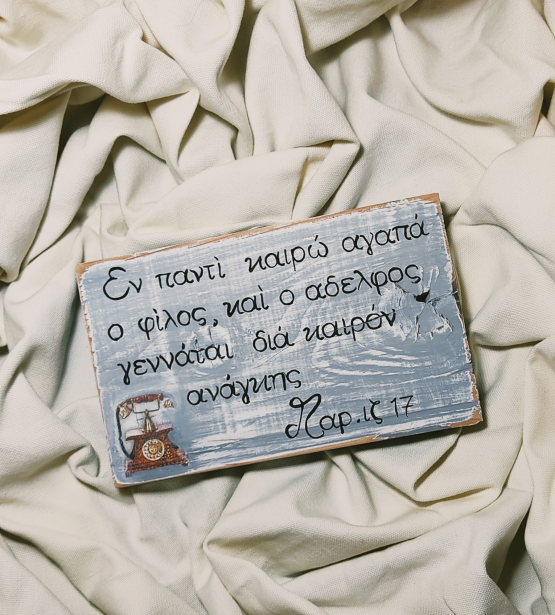 Εν παντὶ καιρώ αγαπά
ο φίλος, καὶ ο αδελφος
γεννάται διά καιρόν
ανάγκης
Παρ. ιζ 17